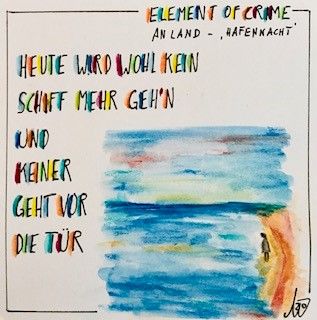 ELEMENT OF CRIME
AN LAND - ‚HAFENNACHT'
HEUTE WIRD WOHL KEIN
SCHIFF MEHR GEH'N
UND
KEINER
GEHT VOR
DIE TÜR